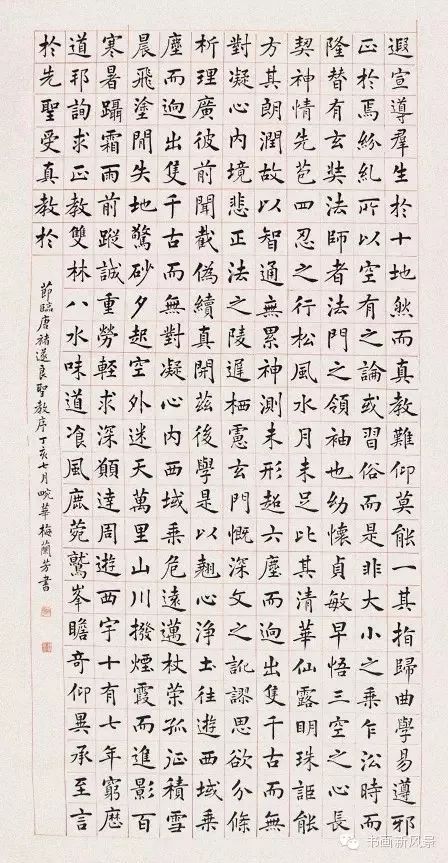 遐宣導羣生於十地然而真教難仰莫能一其指歸曲學易遵邪
正於焉紛糺所以空有之論或習俗而是非大小之乘乍沿時而
隆替有玄奘法師者法門之領袖也幼懷貞敏早悟三空之心長
契神情先苞四忍之行松風水月未足比其清華仙露明珠詎能
方其朗潤故以智通無累神測未形超六塵而迥出隻千古而無
對凝心內境悲正法之陵遲栖慮玄門慨深文之訛謬思欲分條
析理廣彼前聞截偽續真開茲後學是以翹心淨土往遊西域乘
塵而迥出隻千古而無對凝心內西域乘危遠邁杖策孤征積雪
晨飛塗間失地驚砂夕起空外迷天萬里山川撥煙霞而進影百
寒暑躡霜雨前蹤誠重勞輕求深願達周遊西宇十有七年窮歷
道邦詢求正教雙林八水味道飡風鹿菀鷲峯瞻奇仰異承至言
於先聖受真教於
節臨唐褚遂良聖教序丁亥七月畹華梅蘭芳書
书画新风景